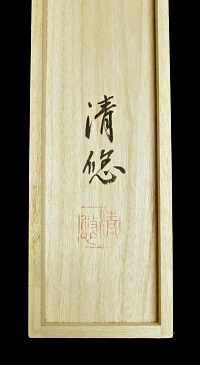 清悠
清悠